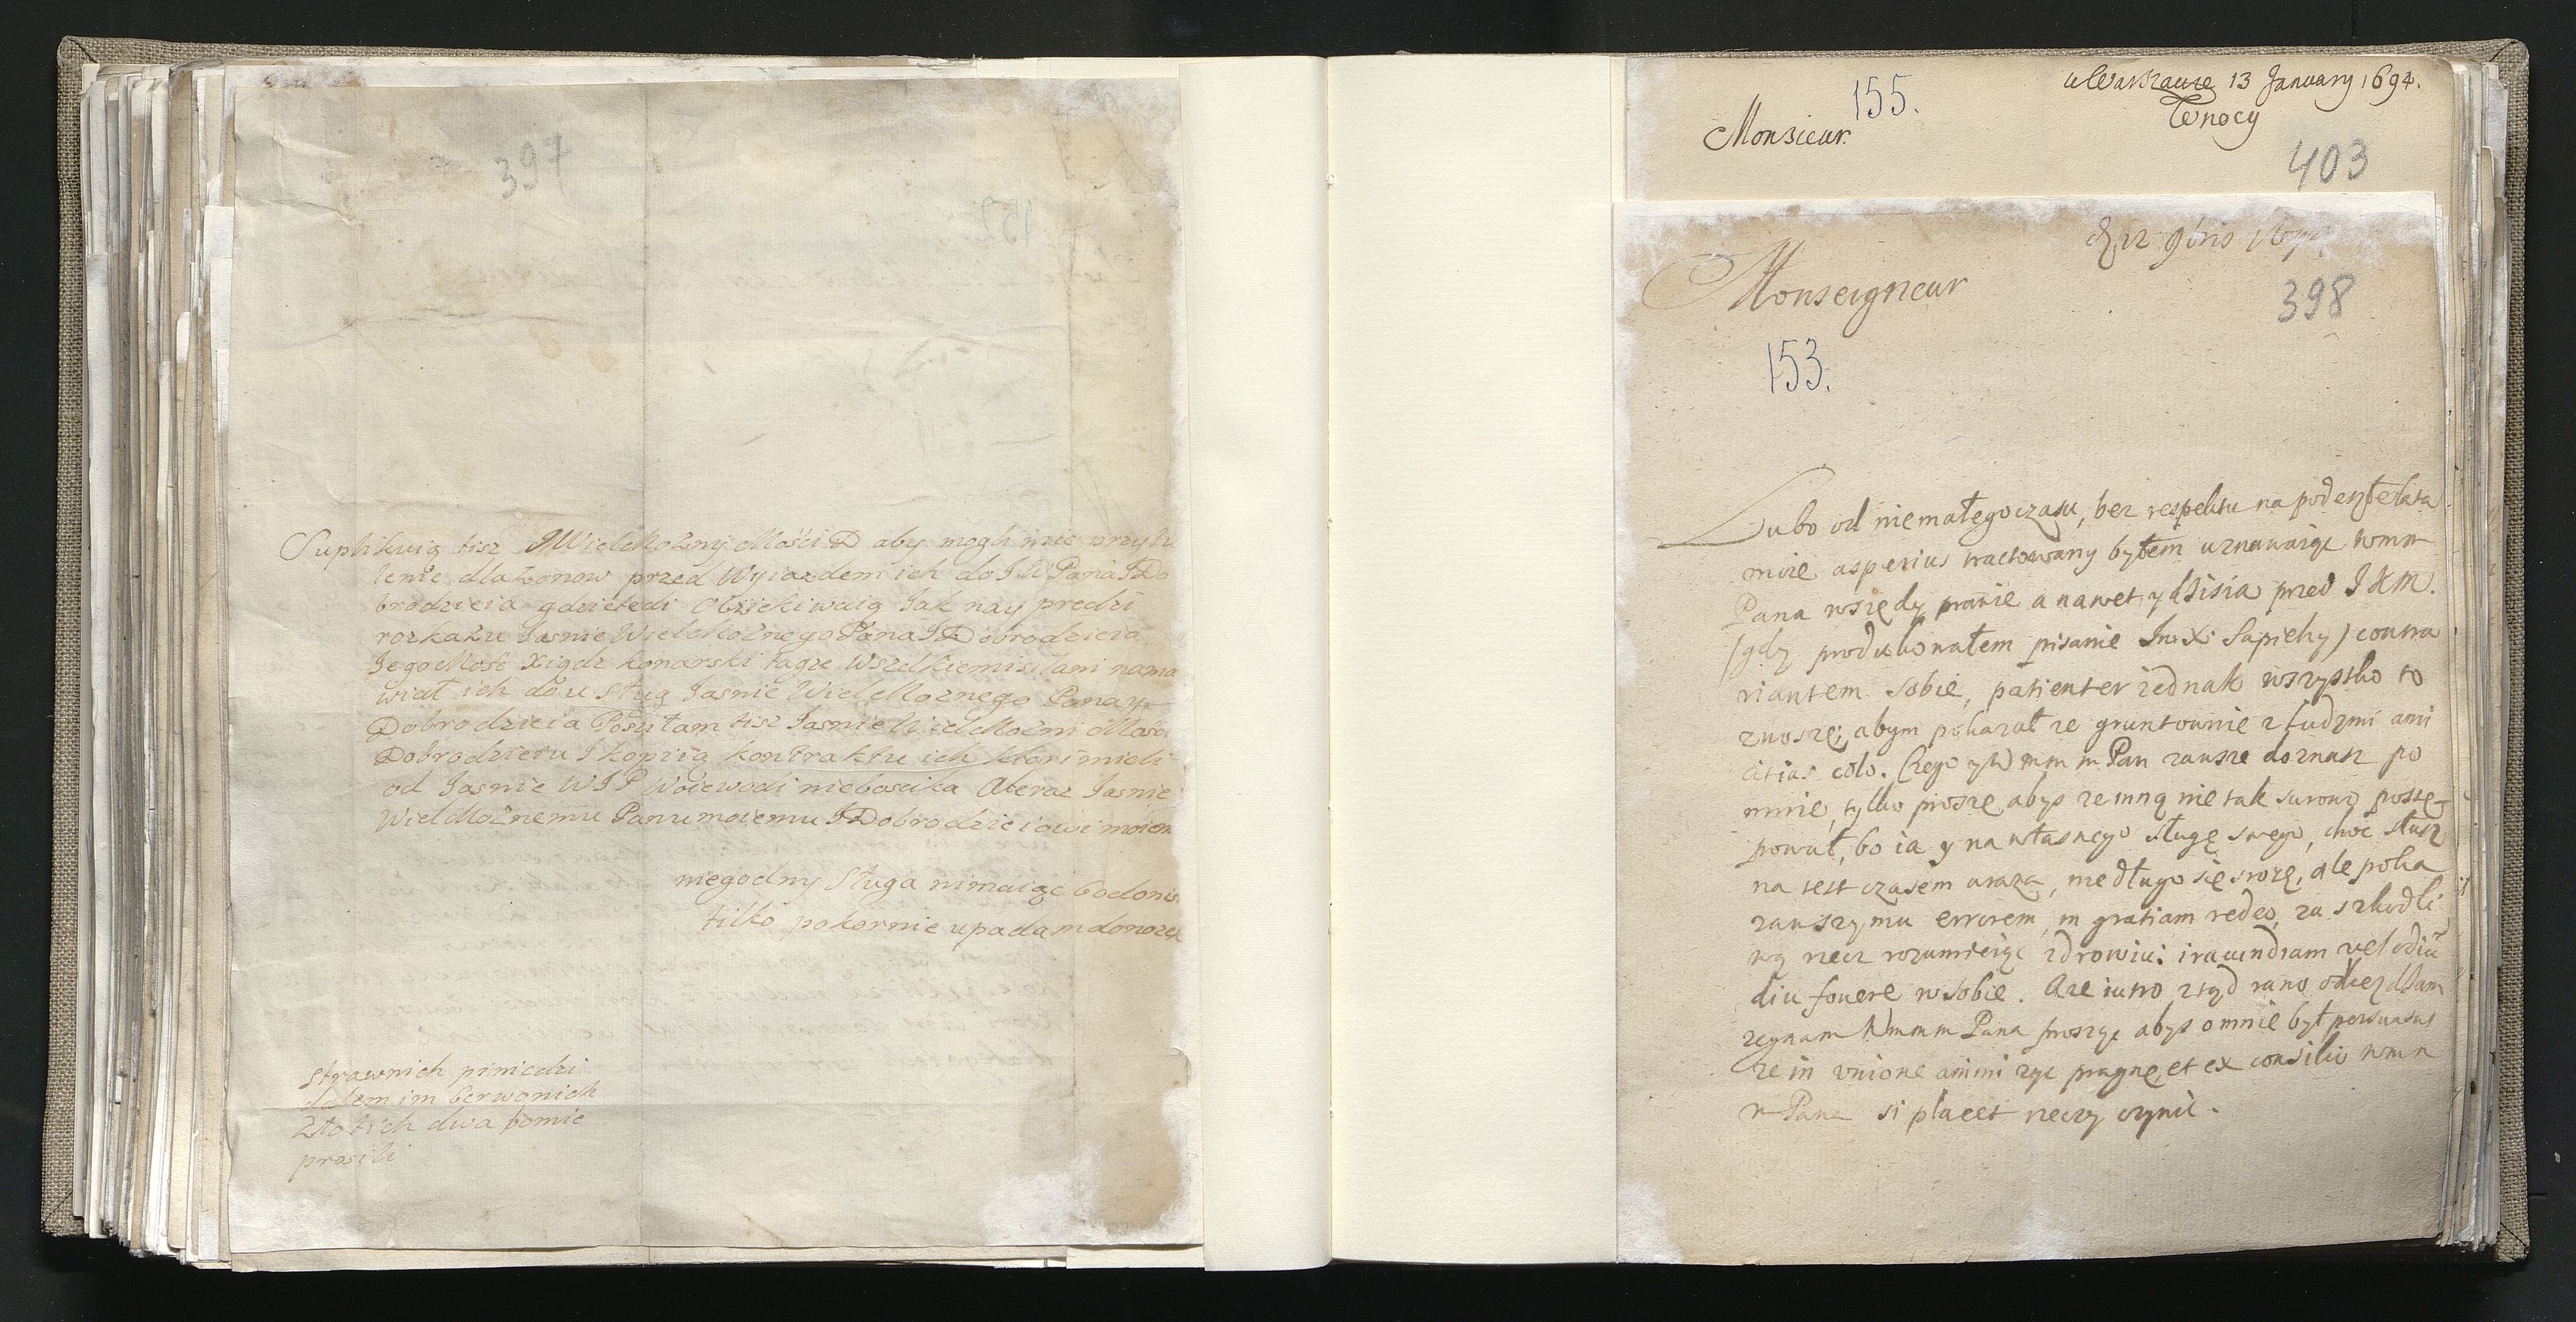 397
Suplikuią tisz JWielmoznij Mości D aby mogli mic przyh
lenie dla zonow przed Wyiazdem ich do JW Pana J Do
brodzieia gdzietedi obziekiwaią Jak nay predzi
rozkazu Jasnie Wielmoznego Pana J Dobrodzieia
Jegomość Xiądz konarski tagze wszelkiemi silami nama
wiał ich do usług Jasnie Wielmoznego Pana y
Dobrodzieia Posiłam tisz Jasnie Wielmozni Mośc
Dobrodzieiu J kopiią kontraktu ich ktori mieli
od Jasnie WJP Woiewodi nieboscika Ateraz Jasnie
Wielmoznemu Panu moiemu J Dobrodzieiowi moiem
niegodny Sługa nimaiąc
tilko pokornie upadam donozek
strawnich piniedzi
dalem im Cerwonich
Zlotich dwa bomie
prosili
w Warszawie 13 January 1694.
Wnocy
155.
Monsieur.
403
22 9bris
Monseigneur
398
153.
Lubo od niemałego czasu, bez respektu na podeszłe lata
moie asperius tractowany byłem uznawaiąc wmm
Pana wszędy prawie a nawet y dzisia przed JKM.
(gdy produkowałem pisanie Im Xi Sapiehy) contra
riantem sobie, patienter iednak wszystko to
znoszę, abym pokazał ze gruntownie z ludzmi ami
citias colo. Czego y W mm m Pan zawsze doznasz po
mnie, tylko proszę abys ze mną nie tak surowo postę
pował, bo ia y na własnego sługę swego, choć słusz
na iest czasem uraza, niedługo się srozę, ale poka
zawszy mu errorem in gratiam redeo, za szkodli
wą rzecz rozumieiąc zdrowiu: iracundiam vel odiu
diu fovere w sobie. Aze iutro ztąd rano odiezdzam
zegnam Wmmm Pana proszę abys o mnie był persuasus
ze in unione animi zyc pragnę, et ex consilio wmm
m Pana si placet rzeczy czynic.